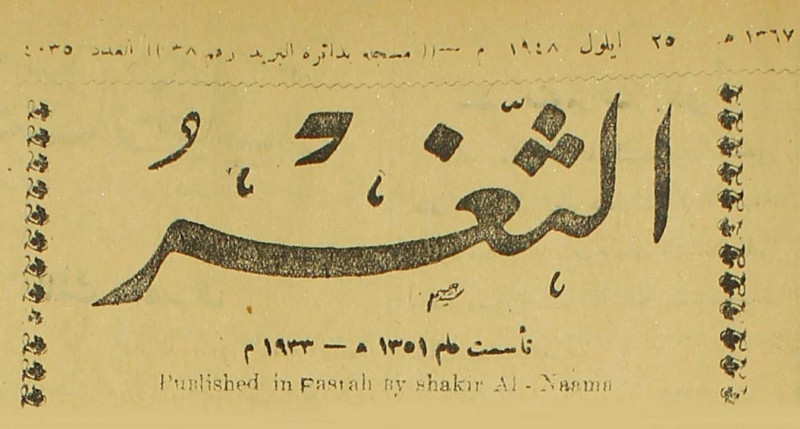 ١٣٦٧ ه‍ ٢٥ ايلول ١٩٤٨ م —(( مسجله بدائرة البريد رقم ٣٨ )) العدد ٤٠٣٥
الثَّغْرُ
تأسست عام ١٣٥١ ه — ١٩٣٣ م
Published in Basrah by shakir Al - Naama